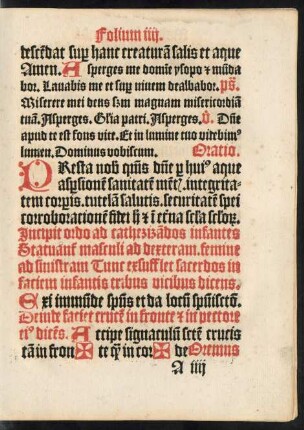 Folium iiij.
descēdat sup̄ hanc creaturā salis et aque
Amen. Asperges me domīe ysopo ⁊ mūda
bor. Lauabis me et sup̄ niuem dealbabor. ps̄.
Miserere mei deus s̄m magnam misericordiā
tuā. Asperges. Glīa patri. Asperges. V̄. Dn̄e
apud te est fons vite. Et in lumine tuo videbimꝰ
lumen. Dominus vobiscum. Oratio.
PResta nob̄ qm̄s dn̄e p̱ huiꝰ aque
aspsionē sanitatē mētꝭ. integrita-
tem corpīs. tutelā salutis. securitatē spei
corroborationē fidei h̄ ⁊ ī et̄na sc̄la sc̄loꝝ.
Incipit ordo ad cathezizādos infantes
Statuānt᷑ masculi ad dexteram. femine
ad sinistram Tunc exsufflet sacerdos in
faciem infantis tribus vicibus dicens.
EXI immūde sp̄us et da locū sp̄uiscto.
Deinde faciet crucē in fronte ⁊ in pectore
dicēs. Accipe signaculū sctē crucis
tā in fron ✠ te q̄ in cor ✠ de Oremus
A iiij